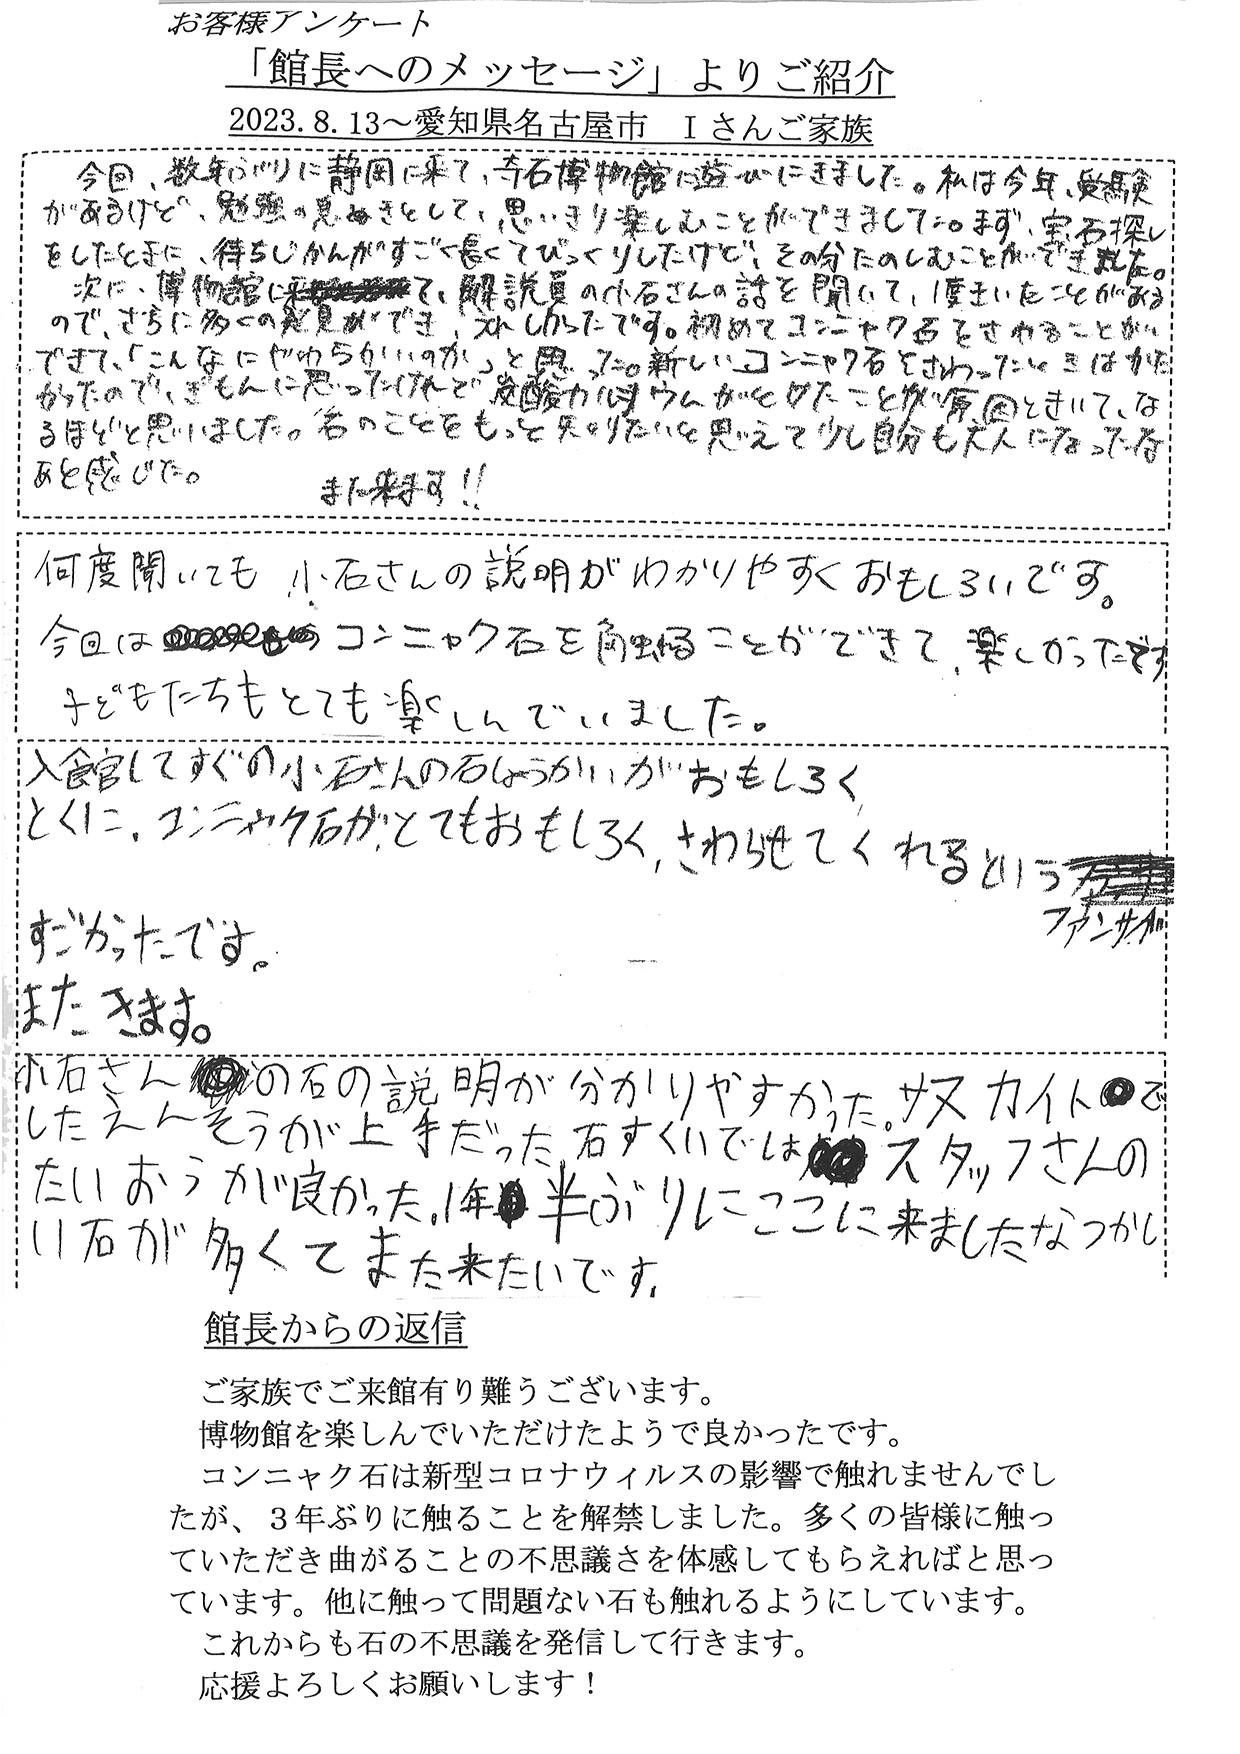 お客様アンケート
「館長へのメッセージ」よりご紹介
2023.8.13～愛知県名古屋市　Iさんご家族
今回、数年ぶりに静岡に来て、奇石博物館に遊びにきました。私は今年、受験
があるけど、勉強の息ぬきとして、思いきり楽しむことができました。まず、宝石探し
をしたときに、待ちじかんがすごく長くてびっくりしたけど、その分たのしむことができました。
次に、博物館に来て、解説員の小石さんの話を聞いて、1度きいたことがある
ので、さらに多くの発見ができ、うれしかったです。初めてコンニャク石をさわることが
できて、「こんなにやわらかいのか」と思った。新しいコンニャク石をさわったときはかた
かったので、ぎもんに思ったけれど炭酸カルシウムがとけたことが原因ときいて、な
るほどと思いました。石のことをもっと知りたいと思えて少し自分も大人になったな
あと感じた。
また来ます!!
何度聞いても 小石さんの説明がわかりやすくおもしろいです。
今回は コンニャク石を触ることができて、楽しかったです
子どもたちもとても楽しんでいました。
入館してすぐの小石さんの石しょうかいがおもしろく
とくに、コンニャク石が、とてもおもしろく、さわらせてくれるという
ファンサが
すごかったです。
またきます。
小石さんの石の説明が分かりやすかった。サヌカイトで
したえんそうが上手だった。石すくいではスタッフさんの
たいおうが良かった。1年半ぶりにここに来ましたなつかし
い石が多くてまた来たいです。
館長からの返信
ご家族でご来館有り難うございます。
博物館を楽しんでいただけたようで良かったです。
コンニャク石は新型コロナウィルスの影響で触れませんでし
たが、３年ぶりに触ることを解禁しました。多くの皆様に触っ
ていただき曲がることの不思議さを体感してもらえればと思っ
ています。他に触って問題ない石も触れるようにしています。
これからも石の不思議を発信して行きます。
応援よろしくお願いします！